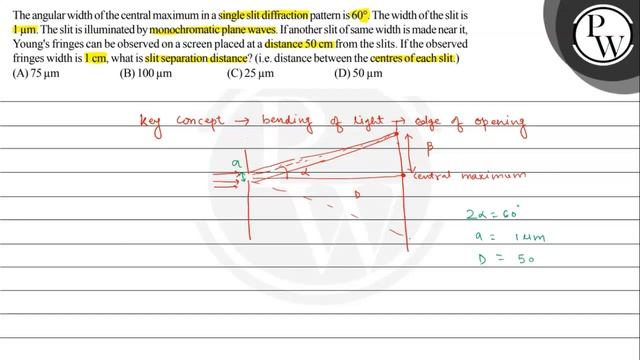 The angular width of the central maximum in a single slit diffraction pattern is 60°. The width of the slit is
1 μm. The slit is illuminated by monochromatic plane waves. If another slit of same width is made near it,
Young's fringes can be observed on a screen placed at a distance 50 cm from the slits. If the observed
fringes width is 1 cm, what is slit separation distance? (i.e. distance between the centres of each slit.)
(A) 75 μm (B) 100 μm (C) 25 μm (D) 50 μm
PW
Key concept → bending of light → edge of opening
a
α
β
central maximum
D
2α = 60°
a = 1 μm
D = 50